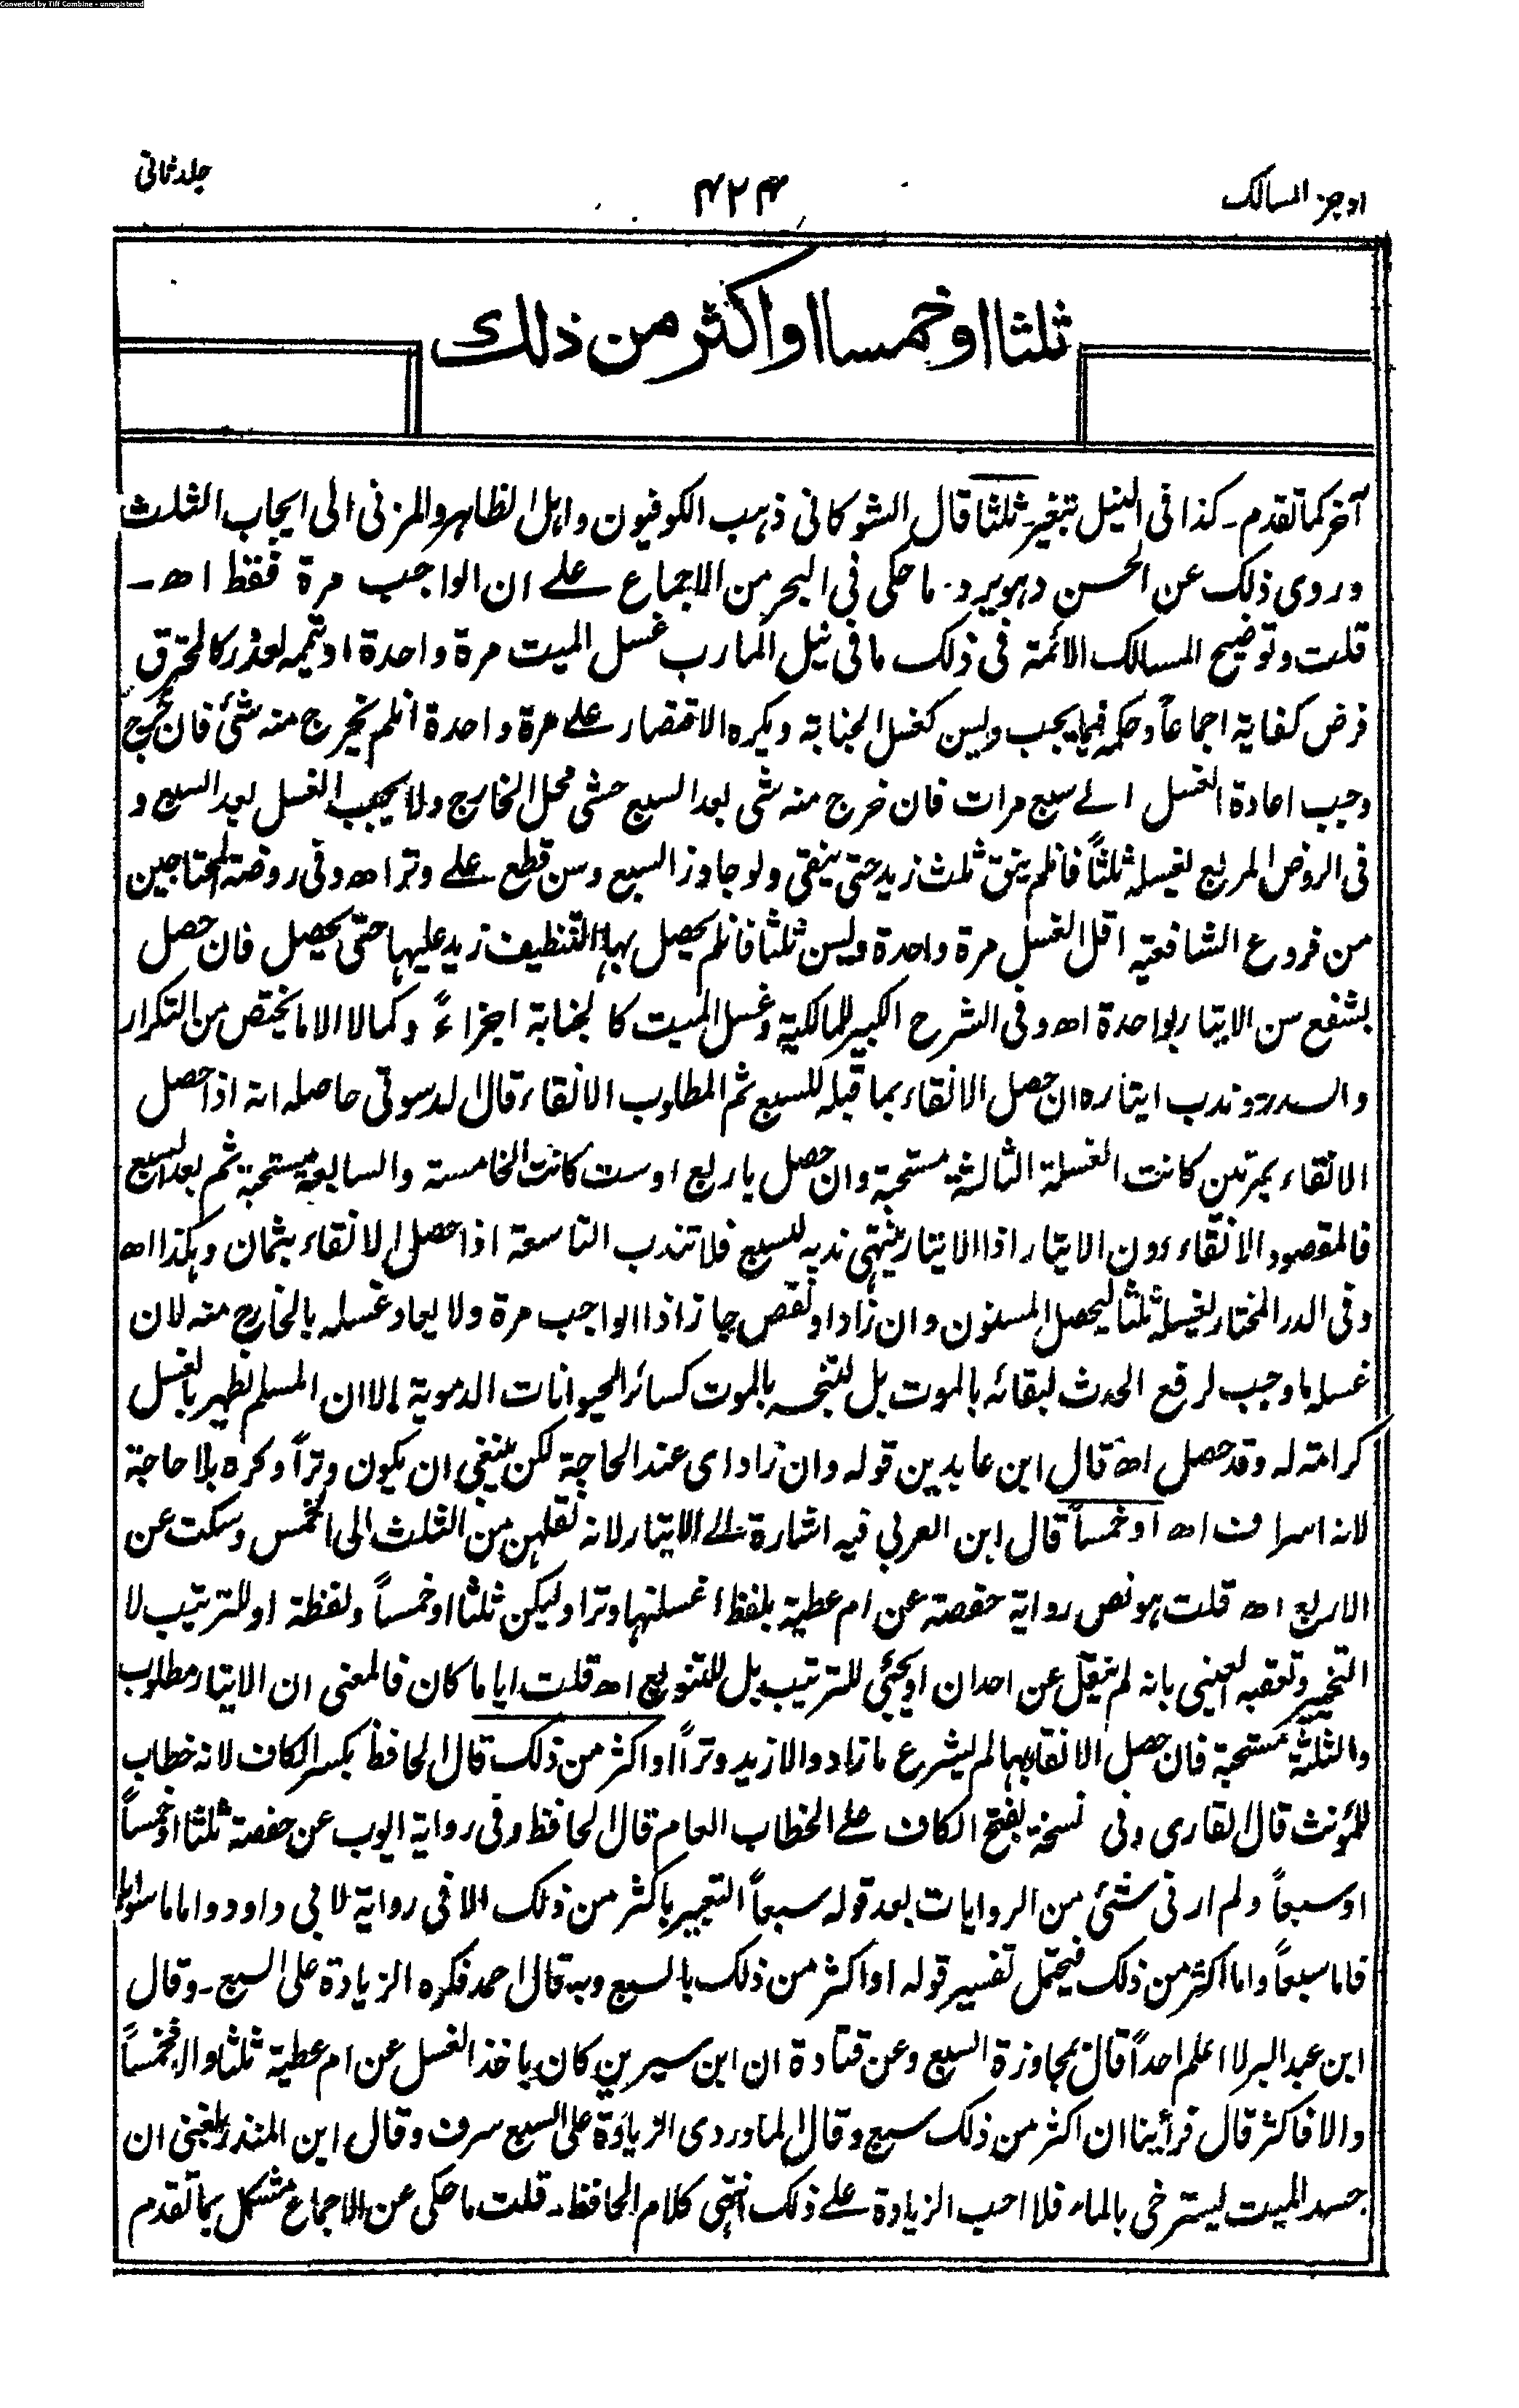 Converted by Tiff Combine - unregistered
اوجز المسالك
۴۲۴
جلد ثانی
ثلثا او خمسا او اكثر من ذلك
آخر كما تقدم۔ كذا فی النيل بتغير۔ ثلثا قال الشوكانی ذہب الكوفيون واہل الظاہر والمزنی الی ايجاب الثلث
وروی ذلك عن الحسن وہو يرد ما حكی فی البحر من الاجماع علے ان الواجب مرة فقط اھ۔
قلت وتوضيح المسالك الائمة فی ذلك ما فی نيل المآرب غسل الميت مرة واحدة او تيممه لعذر كالمحترق
فرض كفاية اجماعاً وحكمه فيما يجب وليسن كغسل الجنابة ويكره الاقتصار علے مرة واحدة انلم يخرج منه شئ فان خرج
وجب اعادة الغسل الے سبع مرات فان خرج منه شی بعد السبع حشی محل الخارج ولا يجب الغسل بعد السبع و
فی الروض المربع لغيسله ثلثاً فانلم ينق ثلث زيد حتی ينقی ولو جاوز السبع وسن قطع علے وتر اھ وفی روضة المحتاجين
من فروع الشافعية اقل الغسل مرة واحدة وليسن ثلثا فانلم يحصل بها التنظيف زيد عليہا حتی يحصل فان حصل
بشفع سن الايتار بواحدة اھ وفی الشرح الكبير للمالكية وغسل الميت كالجنابة اجزاءً وكمالا الا ما يختص من التكرار
والسدر وندب ايتاره ان حصل الانقاء بما قبله للسبع ثم المطلوب الانقاء قال الدسوقی حاصله انه اذا حصل
الانقاء بمرتين كانت الغسلة الثالثة مستحبة وان حصل باربع او ست كانت الخامسة والسابعة مستحبة ثم بعد السبع
فالمقصود الانقاء دون الايتار اذا الايتار ينتہی ندبه للسبع فلا تندب التاسعة اذا حصل الانقاء بثمان وہكذا اھ
وفی الدر المختار لغيسله ثلثا ليحصل المسنون وان زاد او نقص جاز اذا الواجب مرة ولا يعاد غسله بالخارج منه لان
غسله ما وجب لرفع الحدث لبقائه بالموت بل لتنجسه بالموت كسائر الحيوانات الدموية الا ان المسلم يطهر بالغسل
كرامة له وقد حصل اھ قال ابن عابدين قوله وان زاد ای عند الحاجة لكن ينبغی ان يكون وتراً وكره بلا حاجة
لانه اسراف اھ او خمساً قال ابن العربی فيه اشارة الے الايتار لانه نقلهن من الثلث الی الخمس وسكت عن
الاربع اھ قلت ہو نص رواية حفصة عن ام عطية بلفظ اغسلنہا وترا وليكن ثلثا او خمساً ولفظة او للترتيب لا
التخيير وتعقبه العينی بانه لم ينقل عن احد ان او يجئی للترتيب بل للتنويع اھ قلت ايا ما كان فالمعنی ان الايتار مطلوب
والثلثة مستحبة فان حصل الانقاء بہا لم يشرع ما زاد والا زيد وتراً او اكثر من ذلك قال الحافظ بكسر الكاف لانه خطاب
للمؤنث قال القاری وفی نسخة بفتح الكاف علے الخطاب العام قال الحافظ وفی رواية ايوب عن حفصة ثلثا او خمساً
او سبعاً ولم ار فی شئی من الروايات بعد قوله سبعاً التعبير باكثر من ذلك الا فی رواية لابی داود واما ما سواہا
فاما سبعاً واما اكثر من ذلك فيحتمل تفسير قوله او اكثر من ذلك بالسبع وبه قال احمد فكره الزيادة علی السبع۔ وقال
ابن عبد البر لا اعلم احداً قال بمجاوزة السبع وعن قتادة ان ابن سيرين كان ياخذ الغسل عن ام عطية ثلثا والا فخمساً
والا فاكثر قال فرأينا ان اكثر من ذلك سبع وقال الماوردی الزيادة علی السبع سرف وقال ابن المنذر بلغنی ان
جسد الميت ليسترخی بالماء فلا احب الزيادة علے ذلك انتہی كلام الحافظ۔ قلت ما حكی عن الاجماع مشكل بما تقدم